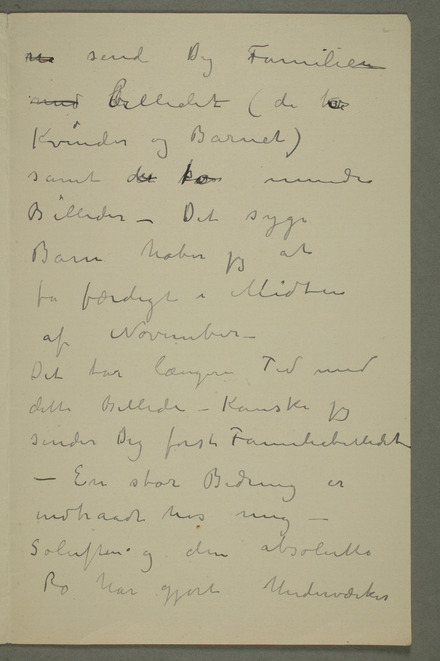 send Dig Familien
Billedet (de to
Kvinder og Barnet)
samt de to mindre
Billeder – Det syge
Barn haber jeg at
fa færdigt i Midten
af November –
Det tar længere Tid med
dette Billede – Kanske jeg
sender Dig først Familiebilledet
– En stor Bedring er
indtraadt hos mig –
Solluften og den absolutte
Ro har gjort Underværker